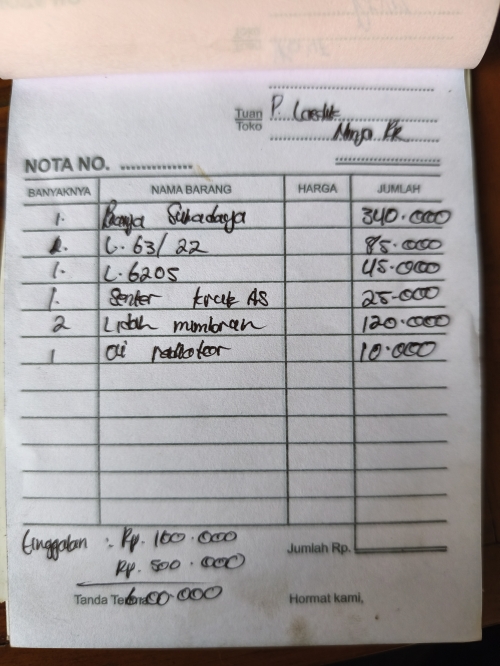 Tuan P.
Toko
NOTA NO. ................
BANYAKNYA NAMA BARANG HARGA JUMLAH
1. 340.000
1. L. 63/22 85.000
1. L. 6205 45.000
1. Senter kruk AS 25.000
2 Lidah mimbran 120.000
1 Oli radiator 10.000
tinggalan : Rp. 100.000
Jumlah Rp.
Rp. 500.000
600.000
Tanda Terima Hormat kami,